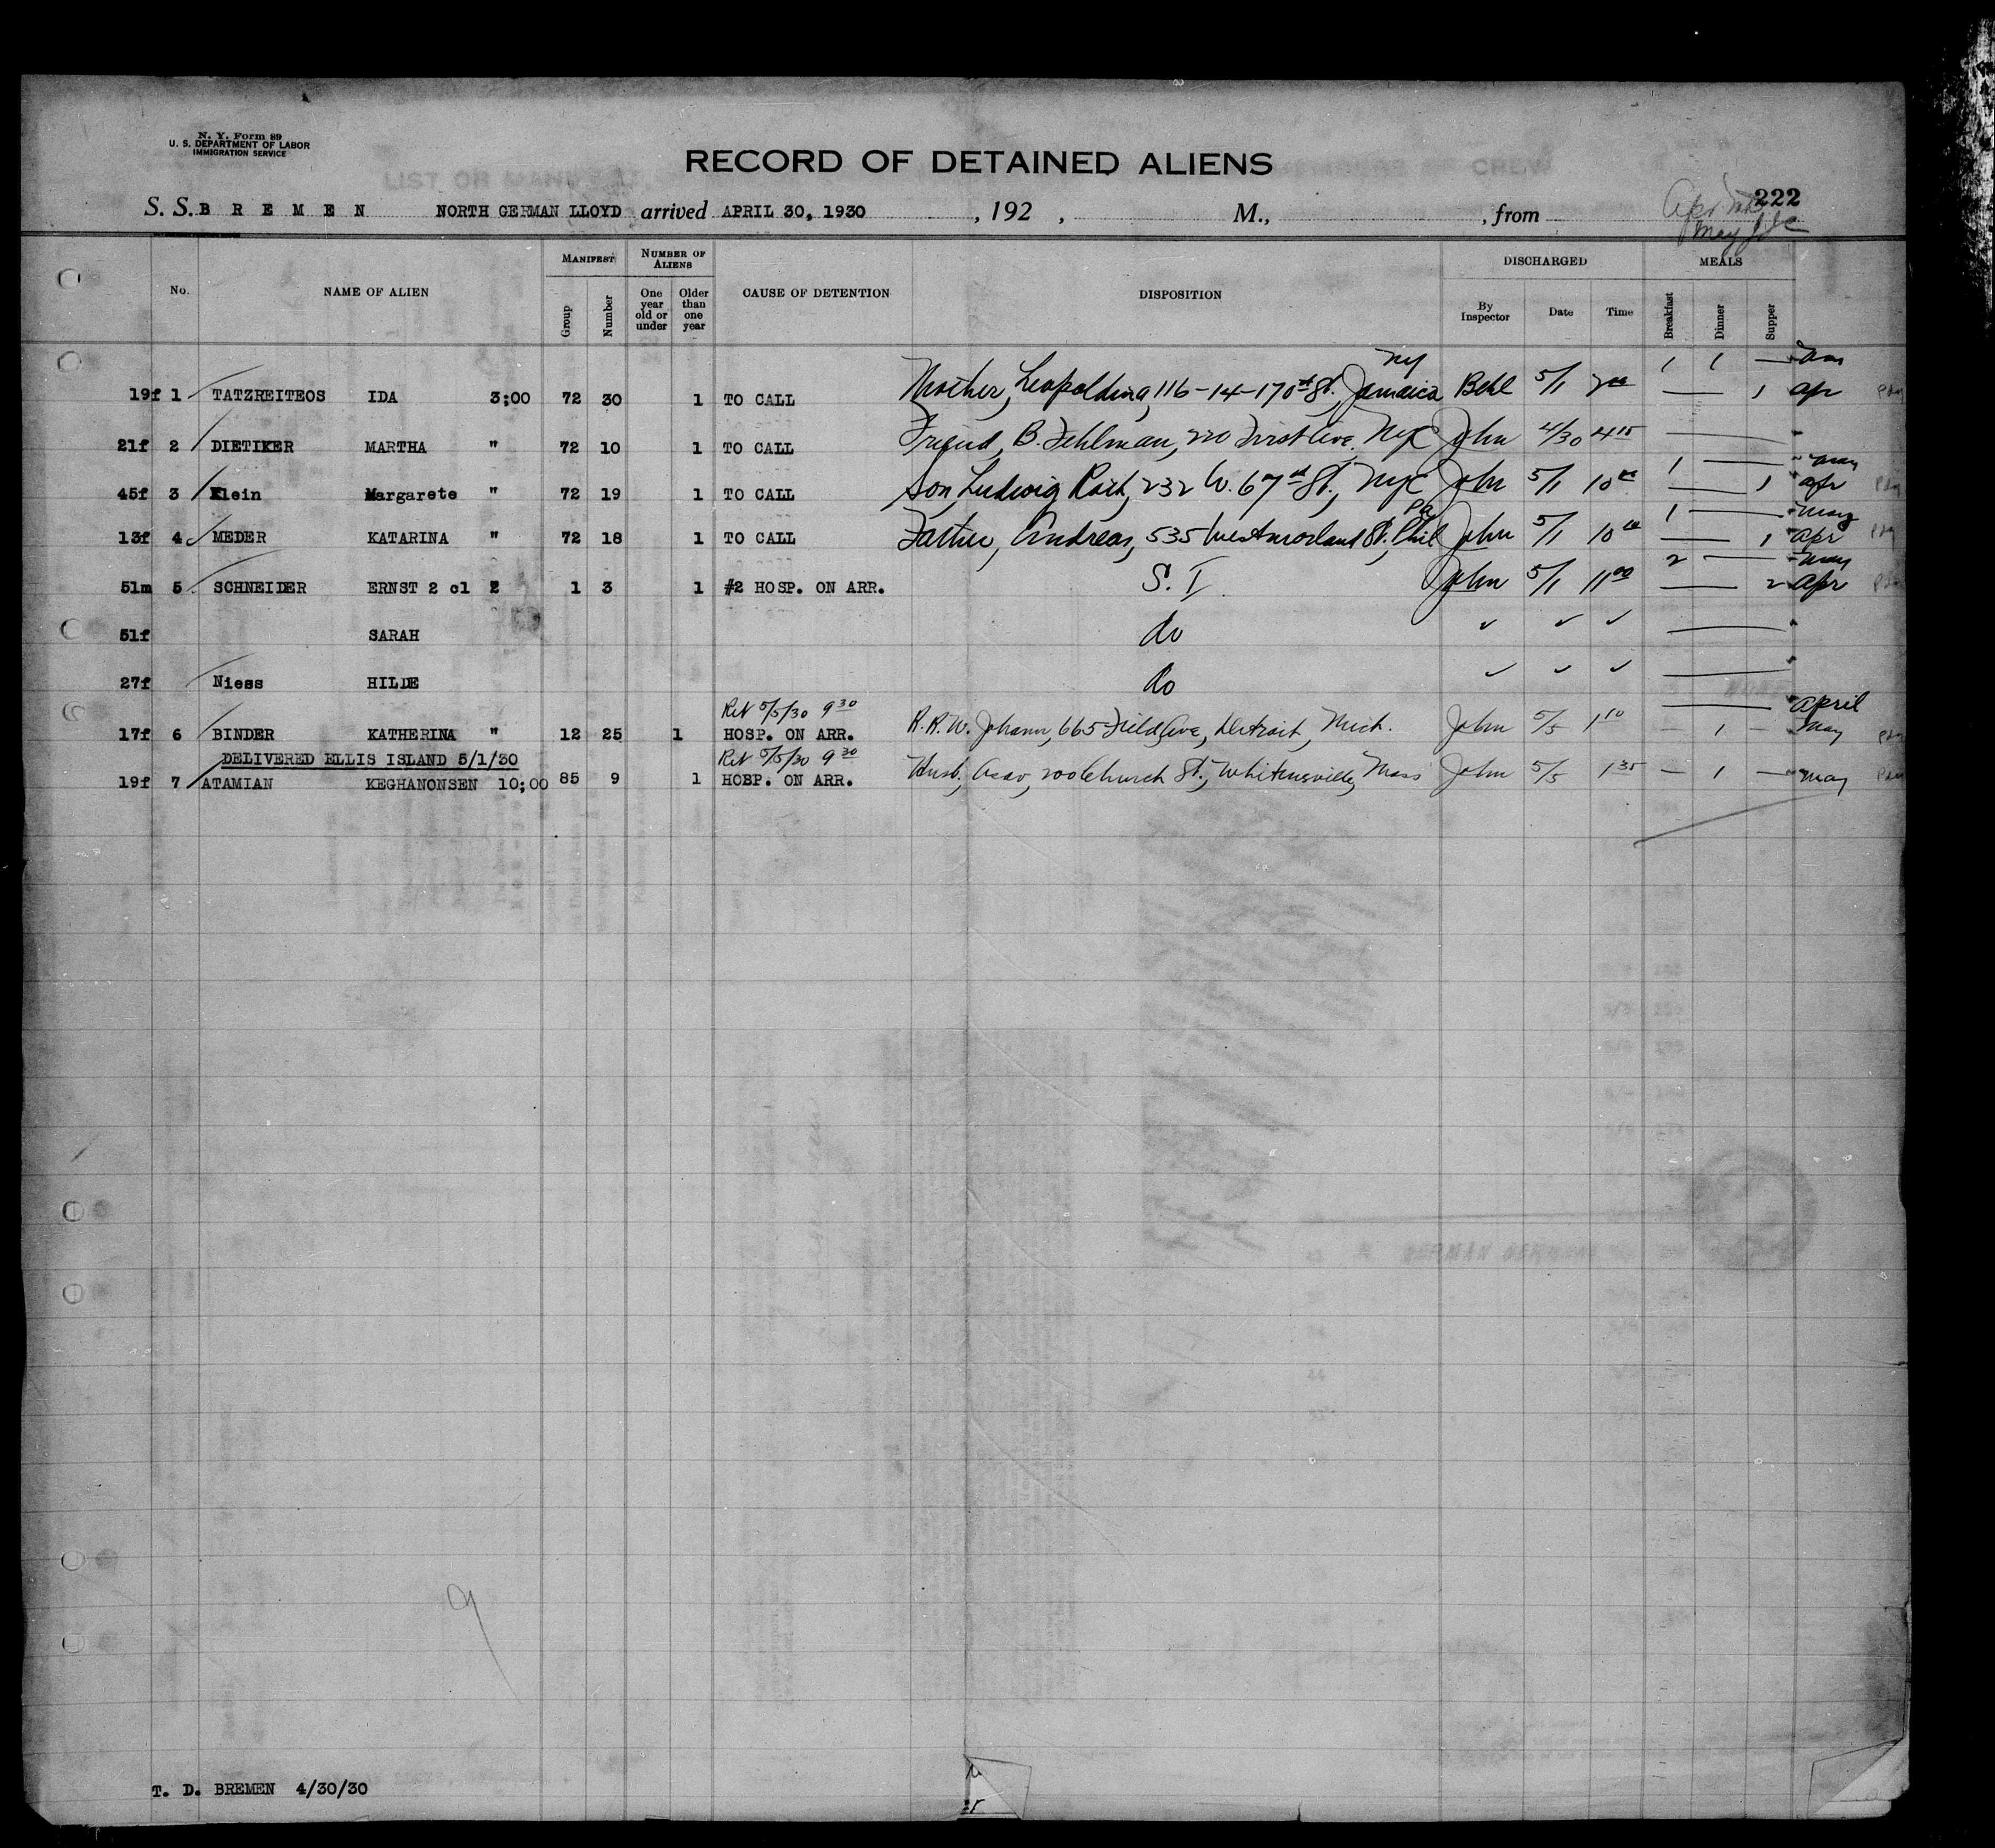 N. Y. Form 89
U. S. DEPARTMENT OF LABOR
IMMIGRATION SERVICE
RECORD OF DETAINED ALIENS
222
S. S. B R E M E N NORTH GERMAN LLOYD arrived APRIL 30, 1930 , 192 , M., , from
No. NAME OF ALIEN MANIFEST Group Number NUMBER OF ALIENS One year old or under Older than one year CAUSE OF DETENTION DISPOSITION DISCHARGED By Inspector Date Time MEALS Breakfast Dinner Supper
1 1 —
19f 1 TATZREITEOS IDA 3;00 72 30 1 TO CALL Mother, Leopoldina, 116-14-170th St. Jamaica NY Behl 5/1 — 1 apr
21f 2 DIETIKER MARTHA " 72 10 1 TO CALL Friend, B. Fehlman, 220 First Ave, NyC John 4/30 4 15 "
1 — " may
45f 3 Klein Margarete " 72 19 1 TO CALL Son, Ludwig 232 W. 67th St., NYC John 5/1 10 — 1 apr
1 — " may
13f 4 MEDER KATARINA " 72 18 1 TO CALL Father, Andreas, 535 Westmorland St., Phil Pa John 5/1 10 — 1 apr
2 — " may
51m 5 SCHNEIDER ERNST 2 cl 2 1 3 1 #2 HOSP. ON ARR. S. I. John 5/1 11 00 — 2 apr
51f SARAH do ✓ ✓ ✓ — "
27f Niess HILDE do ✓ ✓ ✓ — "
Ret 5/5/30 9 30 — " april
17f 6 BINDER KATHERINA " 12 25 1 HOSP. ON ARR. R.R.W. Johann, 665 Field Ave, Detroit, Mich. John 5/5 1 10 — 1 — " may
DELIVERED ELLIS ISLAND 5/1/30 Ret 5/5/30 9 30
19f 7 ATAMIAN KEGHANONSEN 10;00 85 9 1 HOBP. ON ARR. Husb, 200 Church St., Whitensville, Mass John 5/5 1 35 — 1 — " may
9
T. D. BREMEN 4/30/30